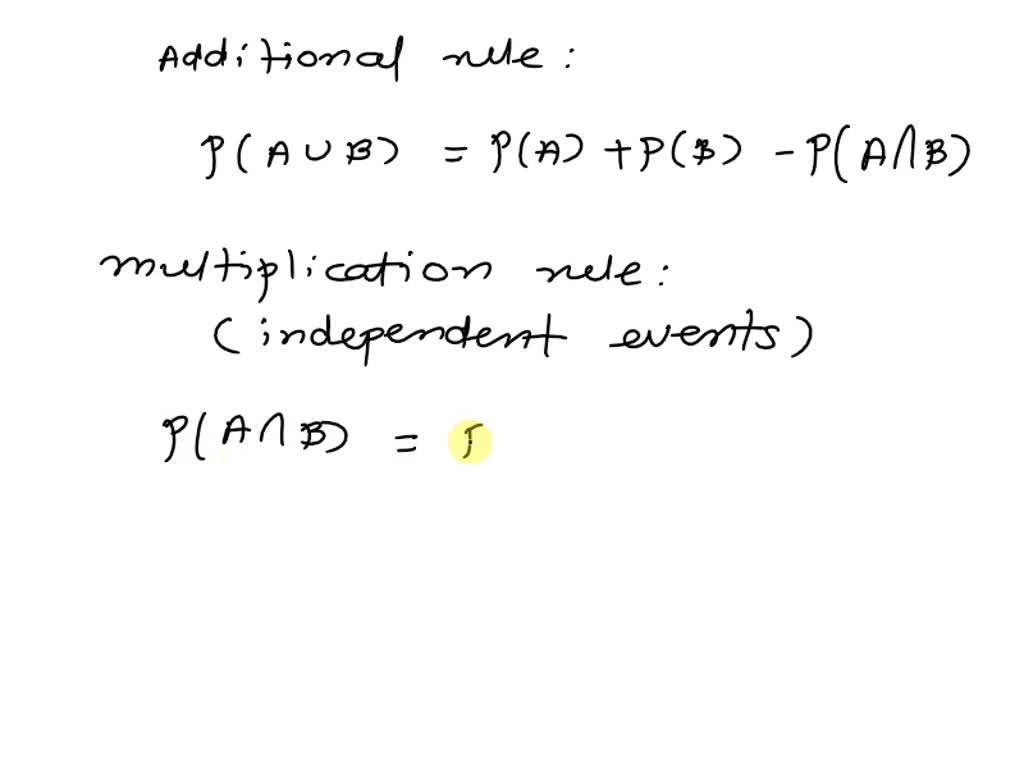 Additional rule:
P(A∪B) = P(A) + P(B) - P(A∩B)
multiplication rule:
(independent events)
P(A∩B) =